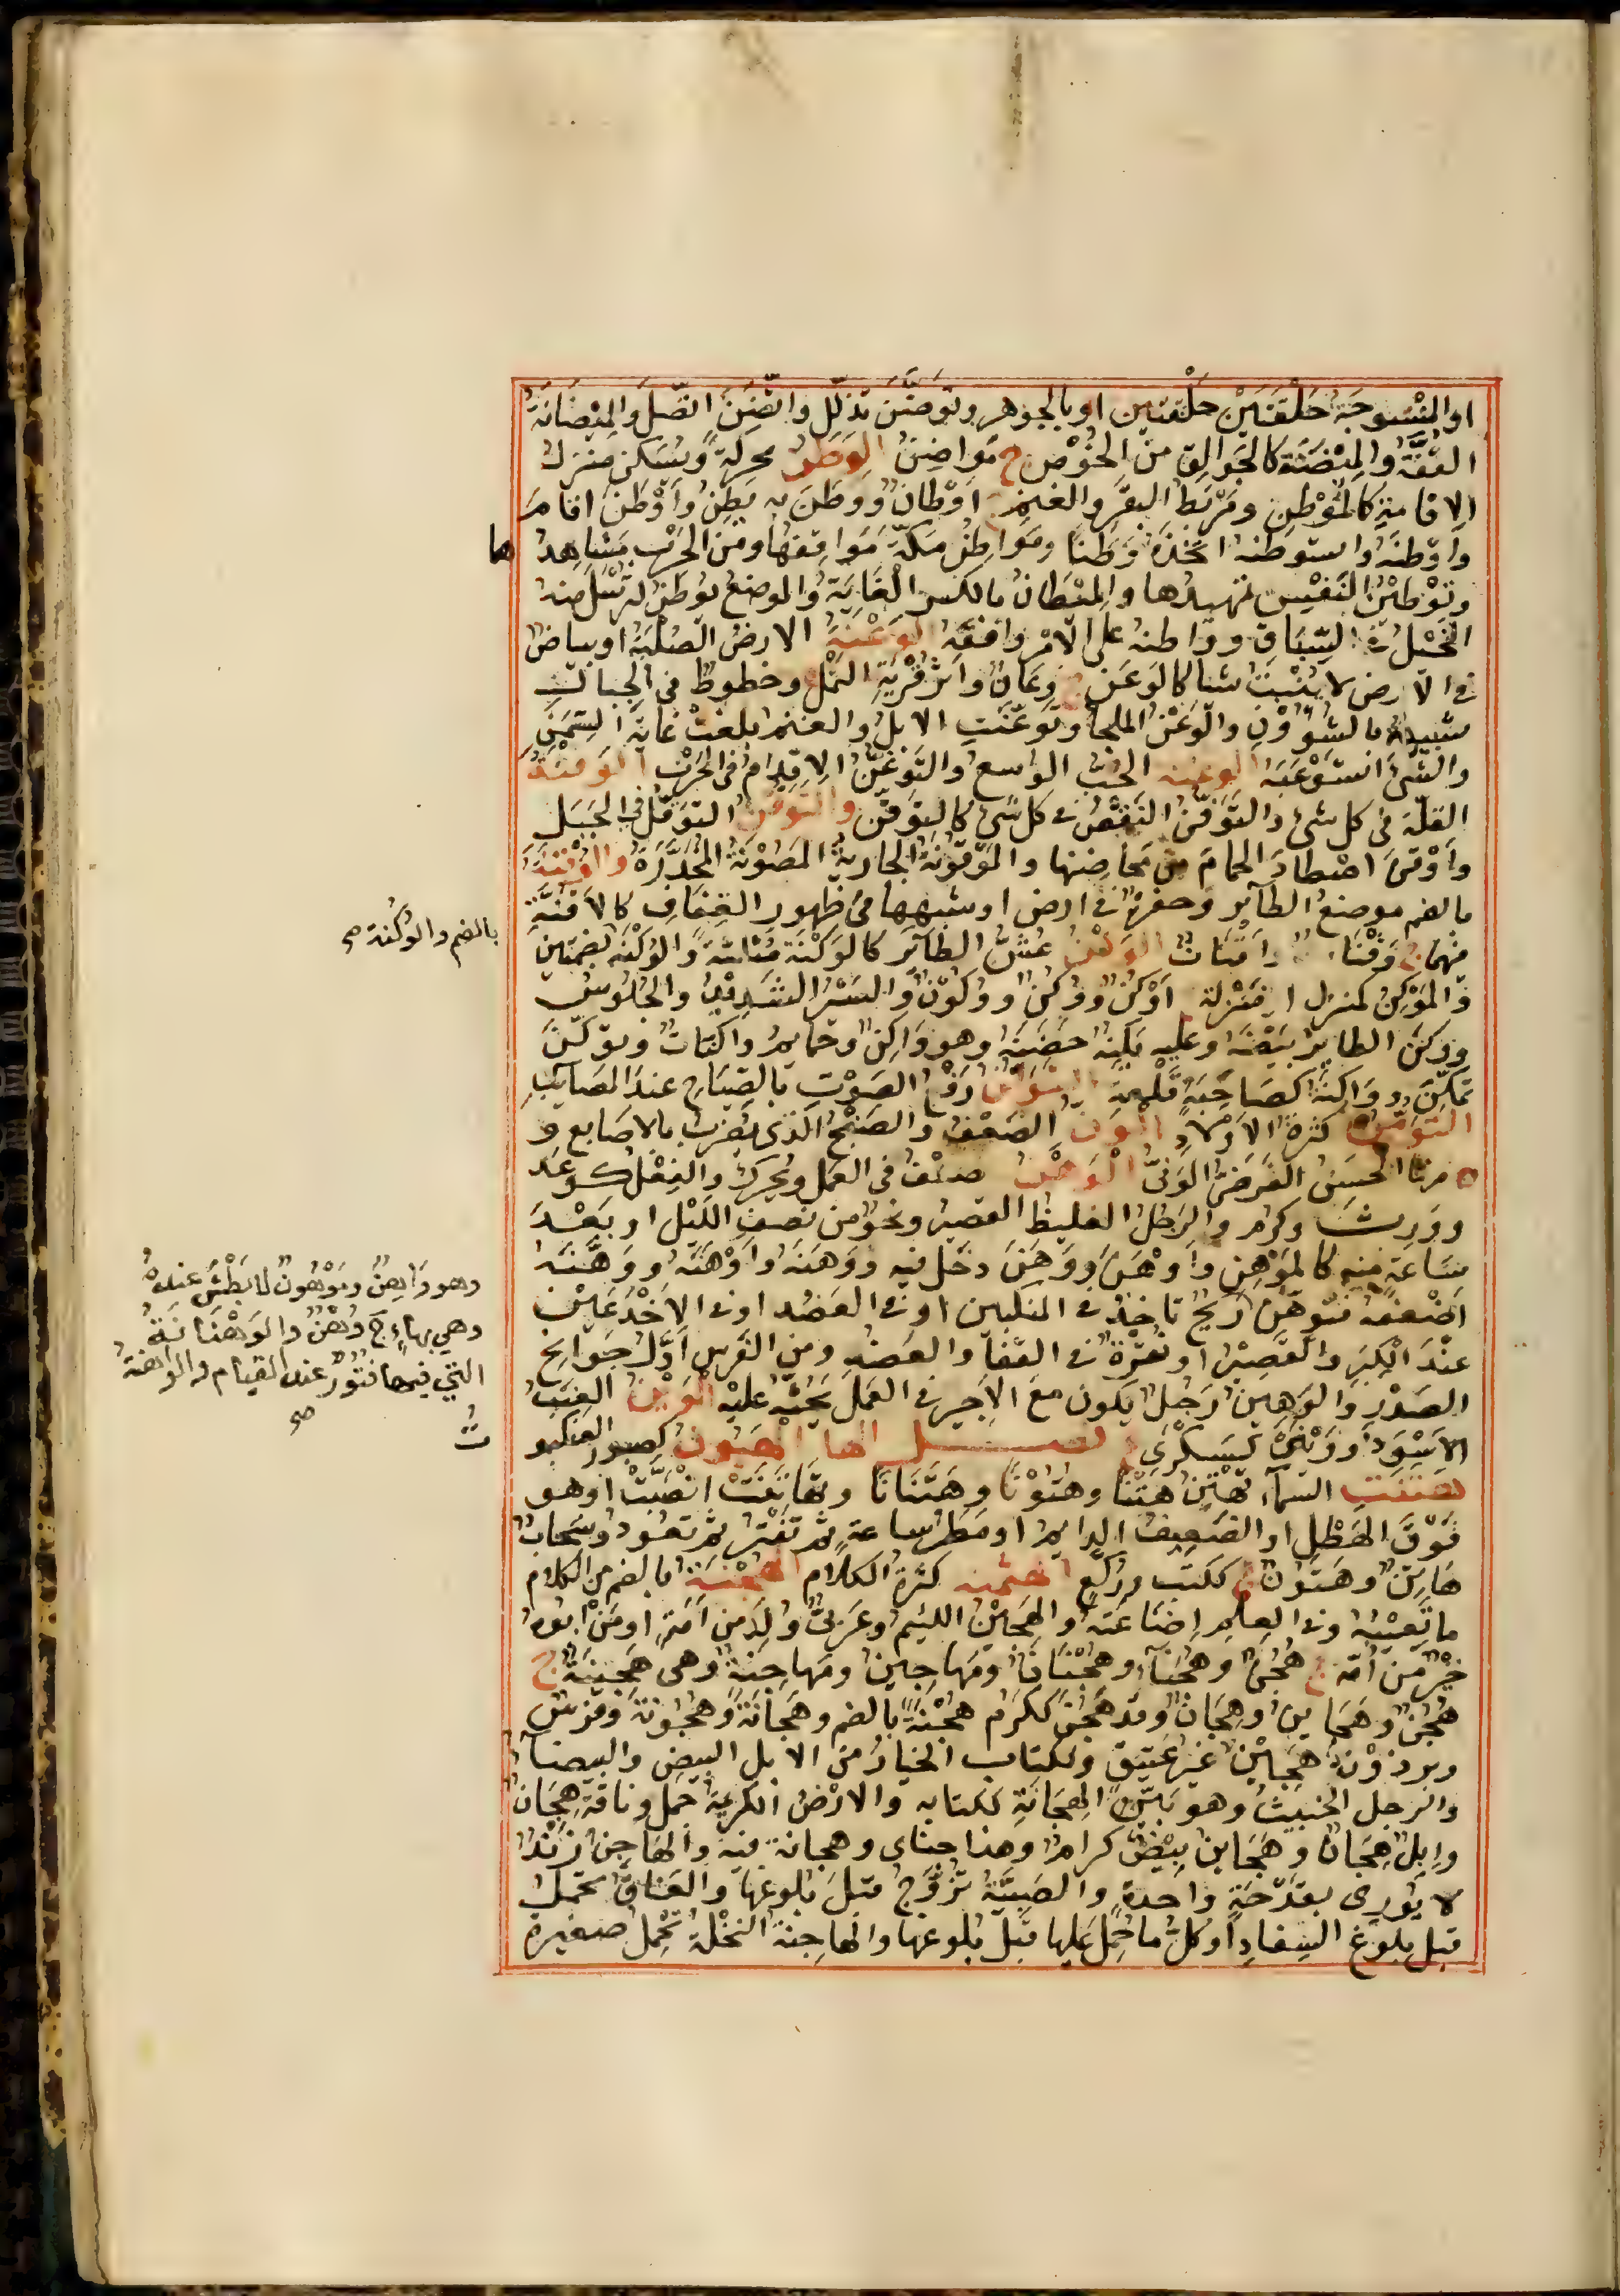 او المنسوجة حلقتين حلقتين او بالجوهر وتوضَّن تذلّل واتّضن اتّصل والميضانة
القفّة والميضنة كالجوالق من الخوص ج مواضن الوطن محركة ويسكن منزل
الاقامة كالموطن ومربط البقر والغنم ج اوطان ووطن به يطن وأوطن اقام
واوطنه واستوطنه اتخذه وطنا ومواطن مكة مواقفها ومن الحرب مشاهدها
وتوطين النفس تمهيدها والميطان بالكسر الغاية والموضع يوطن لترسل منه
الخيل في السباق وواطنه على الامر وافقه الوعنة الارض الصلبة او بياض
في الارض لا ينبت شيا كالوعن ج وعان واثر قرية النمل وخطوط في الجبال
شبيهة بالشؤون والوعن الملجأ وتوعنت الابل والغنم بلغت غاية السمن
والشئ استوعبه الوغنه الحب الواسع والتوغن الاقدام في الحرب الوفنة
القلة في كل شئ والتوفن النقص في كل شئ كالتوفن والتوقن التوقل في الجبل
وأوقن اصطاد الحمام من محاضنها والموقونة الجارية المصونة المخدرة والوقنة
بالضم موضع الطآير وحفرة في ارض او شبهها في ظهور القفاف كالاقنة
فيهما ج وقنات واقنات الوكن عش الطآير كالوكنة مثلثة والوكنة بضمتين
والموكن كمنزل ومنزلة ج اوكن ووكن ووكون والسير الشديد والجلوس
ووكن الطاير بيضه وعليه يكنه حضنه وهو واكن وحمايم واكنات وتوكن
تمكن وواكنة كصاحبة قلعة التولن رفع الصوت بالصياح عند المصايب
التومن كثرة الاولاد الون الضعف والصنج الذي يضرب بالاصابع و
ة منها الحسين الفرضى الونى الوهن ضعف في العمل ويحرك والفعل كوعد
وورث وكرم والرجل الغليظ القصير ونحو من نصف الليل او بعد
ساعة منه كالموهن وأوهن ووهن دخل فيه ووهنه واوهنه ووهنه
اضعفه فتوهن ريح تاخذ في المنكبين او في العضد او في الاخدعين
عند الكبر والقصيرا او نقرة في القفا والعضد ومن الفرس اول جوانح
الصدر والوهين رجل يكون مع الاجير في العمل يحثه عليه الوين العنب
الاسود ووينى كسكرى فصل الها الهبون كصبور العنكبوت
هتنت السمآء تهتن هتنا وهتونا وهتنانا وتهاتنت انصبت او هو
فوق الهطل او الضعيف الدايم او مطر ساعة ثم تفتر ثم تعود وسحاب
هاتن وهتون ج ككتب وركع الهتمنه كثرة الكلام الهجنة بالضم من الكلام
ما تعيبه وفي العلم اضاعته والهجين اللئيم وعربى ولد من امة او من ابوه
خير من امه ج هجن وهجنآء وهجنان ومهاجين ومهاجنة وهى هجينة ج
هجن وهجاين وهجان وقد هجن ككرم هجنة بالضم وهجانة وهجونة وفرس
وبرذونة هجين غير عتيق وككتاب الخيار من الابل البيض والبيضآء
والرجل الحسيب وهو بين الهجانة ككتابه والارض الكريمة جمل وناقة هجان
وابل هجان وهجاين بيض كرام وهذا جناى وهجانه فيه والهاجن زند
لا يورى بقدحة واحدة والصبية تزوج قبل بلوغها والعناق تحمل
قبل بلوغ السفاد او كل ما حمل عليها قبل بلوغها والهاجنة النخلة تحمل صغيرة
بالضم والوكنة صح
وهو واهن وموهون لا بطش عنده
وهي بهاء ج وهن والوهنانة
التي فيها فتور عند القيام والواهنة
صح